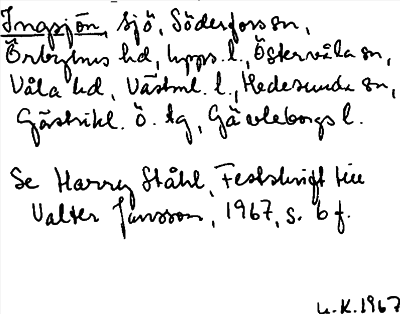 Ingsjön, sjö, Söderfors sn,
Örbyhus hd, Upps. l., Östervåla sn,
Våla hd, Västml. l., Hedesunda sn,
Gästrikl. ö. tg, Gävleborgs l.
Se Harry Ståhl, Festskrift till
Valter Jansson, 1967, s. 6 f.
U.K. 1967